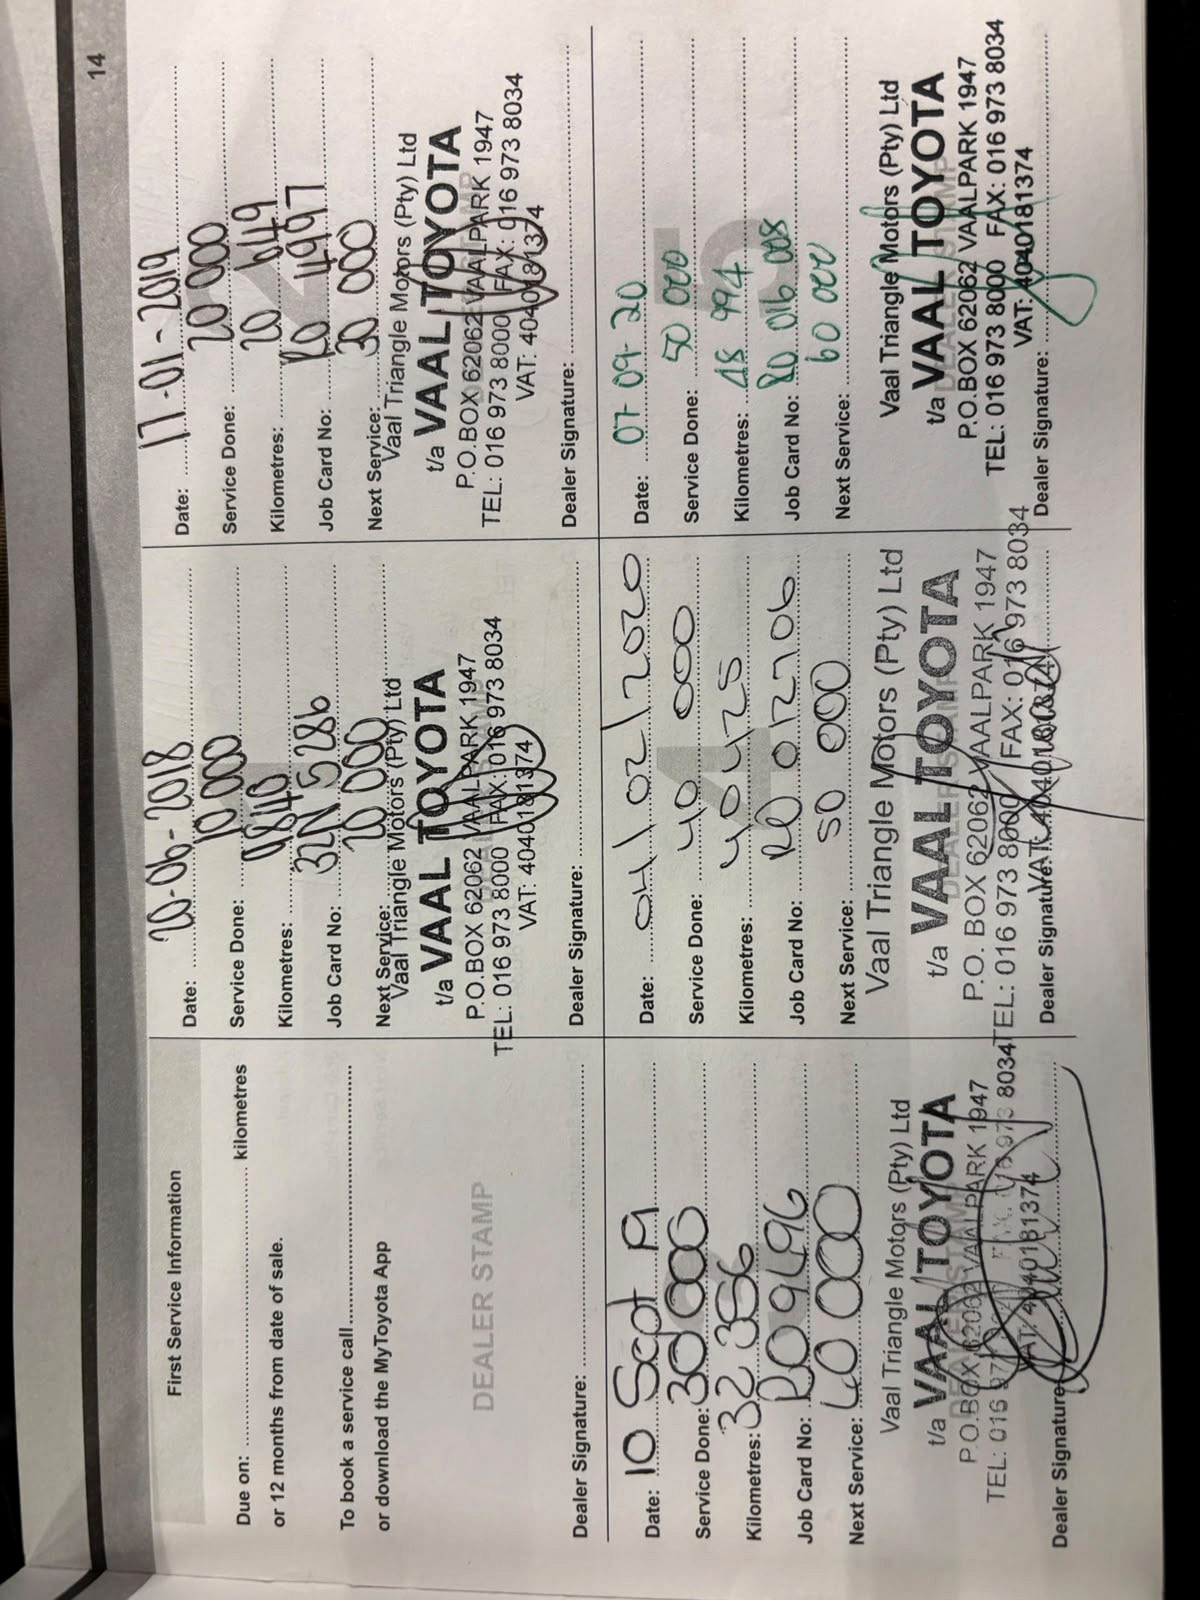 14
First Service Information
Due on: kilometres
or 12 months from date of sale.
To book a service call
or download the MyToyota App
DEALER STAMP
Dealer Signature:
Date: 20-06-2018
Service Done: 10 000
Kilometres: 9840
Job Card No: 32N 5286
Next Service: 20 000
Vaal Triangle Motors (Pty) Ltd
t/a VAAL TOYOTA
P.O.BOX 62062 VAALPARK 1947
TEL: 016 973 8000 FAX: 016 973 8034
VAT: 4040181374
Dealer Signature:
Date: 17-01-2019
Service Done: 20 000
Kilometres: 20 649
Job Card No: RO 4997
Next Service: 30 000
Vaal Triangle Motors (Pty) Ltd
t/a VAAL TOYOTA
P.O.BOX 62062 VAALPARK 1947
TEL: 016 973 8000 FAX: 016 973 8034
VAT: 4040181374
Dealer Signature:
Date: 10 Sept 19
Service Done: 30 000
Kilometres: 32 356
Job Card No: RO9496
Next Service: 40 000
Vaal Triangle Motors (Pty) Ltd
t/a VAAL TOYOTA
P.O.BOX 62062 VAALPARK 1947
TEL: 016 973 8034
VAT: 4040181374
Dealer Signature:
Date: 04/02/2020
Service Done: 40 000
Kilometres: 40425
Job Card No: RO 012706
Next Service: 50 000
Vaal Triangle Motors (Pty) Ltd
t/a VAAL TOYOTA
P.O. BOX 62062 VAALPARK 1947
TEL: 016 973 8000 FAX: 016 973 8034
VAT: 4040181374
Dealer Signature:
Date: 07-09-20
Service Done: 50 000
Kilometres: 48 994
Job Card No: RO 016 008
Next Service: 60 000
Vaal Triangle Motors (Pty) Ltd
t/a VAAL TOYOTA
P.O.BOX 62062 VAALPARK 1947
TEL: 016 973 8000 FAX: 016 973 8034
VAT: 4040181374
Dealer Signature: